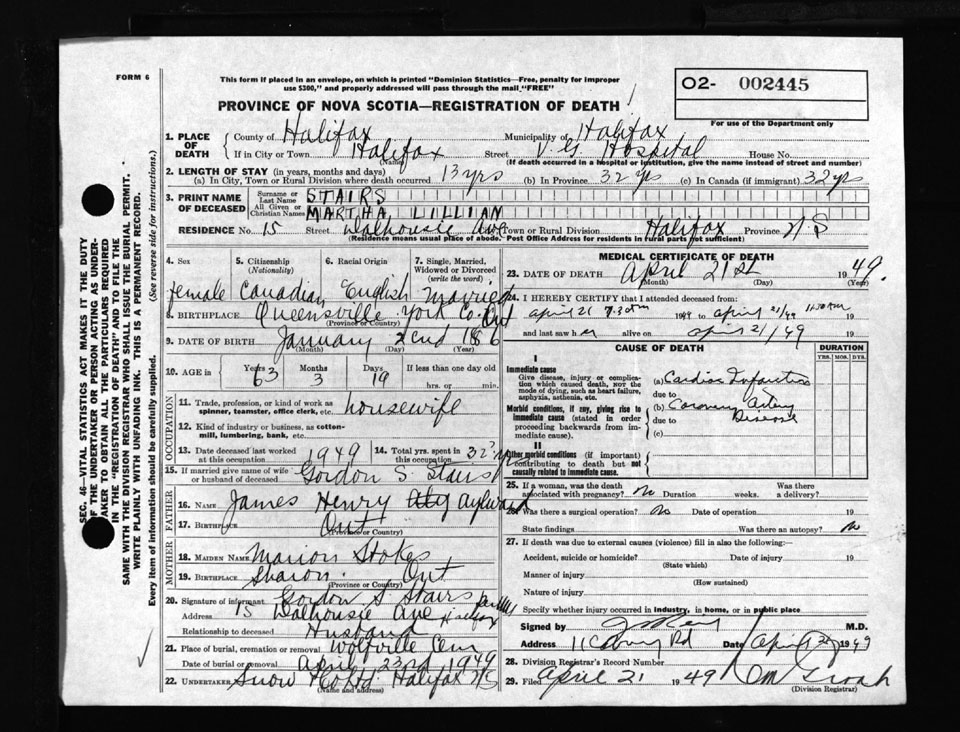 FORM 6
This form if placed in an envelope, on which is printed "Dominion Statistics—Free, penalty for improper
use $300," and properly addressed will pass through the mail "FREE"
O2- 002445
PROVINCE OF NOVA SCOTIA—REGISTRATION OF DEATH
For use of the Department only
1. PLACE OF DEATH
County of Halifax Municipality of Halifax
If in City or Town Halifax Street V. G. Hospital House No.
(Name) (If death occurred in a hospital or institution, give the name instead of street and number)
2. LENGTH OF STAY (in years, months and days)
(a) In City, Town or Rural Division where death occurred 13 yrs (b) In Province 32 yrs (c) In Canada (if immigrant) 32 yrs
3. PRINT NAME OF DECEASED
Surname or Last Name STAIRS
All Given or Christian Names MARTHA, LILLIAN
RESIDENCE No. 15 Street Dalhousie Ave Town or Rural Division Halifax Province N.S
(Residence means usual place of abode. Post Office Address for residents in rural parts not sufficient)
4. Sex 5. Citizenship (Nationality) 6. Racial Origin 7. Single, Married, Widowed or Divorced (write the word)
female Canadian English Married
8. BIRTHPLACE Queensville York Co. Ont
(Province or Country)
9. DATE OF BIRTH January 2cnd 1886
(Month) (Day) (Year)
10. AGE in Years 63 Months 3 Days 19 If less than one day old
hrs. or min.
OCCUPATION
11. Trade, profession, or kind of work as spinner, teamster, office clerk, etc. housewife
12. Kind of industry or business, as cotton-mill, lumbering, bank, etc.
13. Date deceased last worked at 1949 14. Total yrs. spent in this occupation 32
15. If married give name of wife or husband of deceased Gordon S Stairs
FATHER
16. NAME James Henry Aylward
17. BIRTHPLACE Ont
(Province or Country)
MOTHER
18. MAIDEN NAME Marion Stokes
19. BIRTHPLACE Sharon. Ont
(Province or Country)
20. Signature of informant Gordon S Stairs
Address 15 Dalhousie Ave Halifax
Relationship to deceased Husband
21. Place of burial, cremation or removal Wolfville Cem
Date of burial or removal April 23rd 1949
22. UNDERTAKER Snow & Co Ltd. Halifax N.S
(Name and address)
MEDICAL CERTIFICATE OF DEATH
23. DATE OF DEATH April 21st 1949.
(Month) (Day) (Year)
24. I HEREBY CERTIFY that I attended deceased from:
april 21 7.30 am 1949 to april 21/49 11.30 AM 19
and last saw her alive on april 21/49 19
CAUSE OF DEATH DURATION
YRS. MOS. DYS.
I
Immediate cause
Give disease, injury or complication which caused death, not the mode of dying, such as heart failure, asphyxia, asthenia, etc.
(a) Cardiac Infarction
due to
Morbid conditions, if any, giving rise to immediate cause (stated in order proceeding backwards from immediate cause).
(b) Coronary Artery Disease
due to
(c)
II
Other morbid conditions (if important) contributing to death but not causally related to immediate cause.
25. If a woman, was the death associated with pregnancy? No Duration weeks. Was there a delivery?
26. Was there a surgical operation? No Date of operation 19
State findings Was there an autopsy? No
27. If death was due to external causes (violence) fill in also the following:—
Accident, suicide or homicide? Date of injury 19
(State which)
Manner of injury
(How sustained)
Nature of injury
Specify whether injury occurred in industry, in home, or in public place
Signed by M.D.
Address Rd Date April 1949
28. Division Registrar's Record Number
29. Filed April 21 1949
(Division Registrar)
SEC. 46—VITAL STATISTICS ACT MAKES IT THE DUTY
OF THE UNDERTAKER OR PERSON ACTING AS UNDERTAKER TO OBTAIN ALL THE PARTICULARS REQUIRED
IN THE "REGISTRATION OF DEATH" AND TO FILE THE
SAME WITH THE DIVISION REGISTRAR WHO SHALL ISSUE THE BURIAL PERMIT.
WRITE PLAINLY WITH UNFADING INK. THIS IS A PERMANENT RECORD.
Every item of information should be carefully supplied. (See reverse side for instructions).